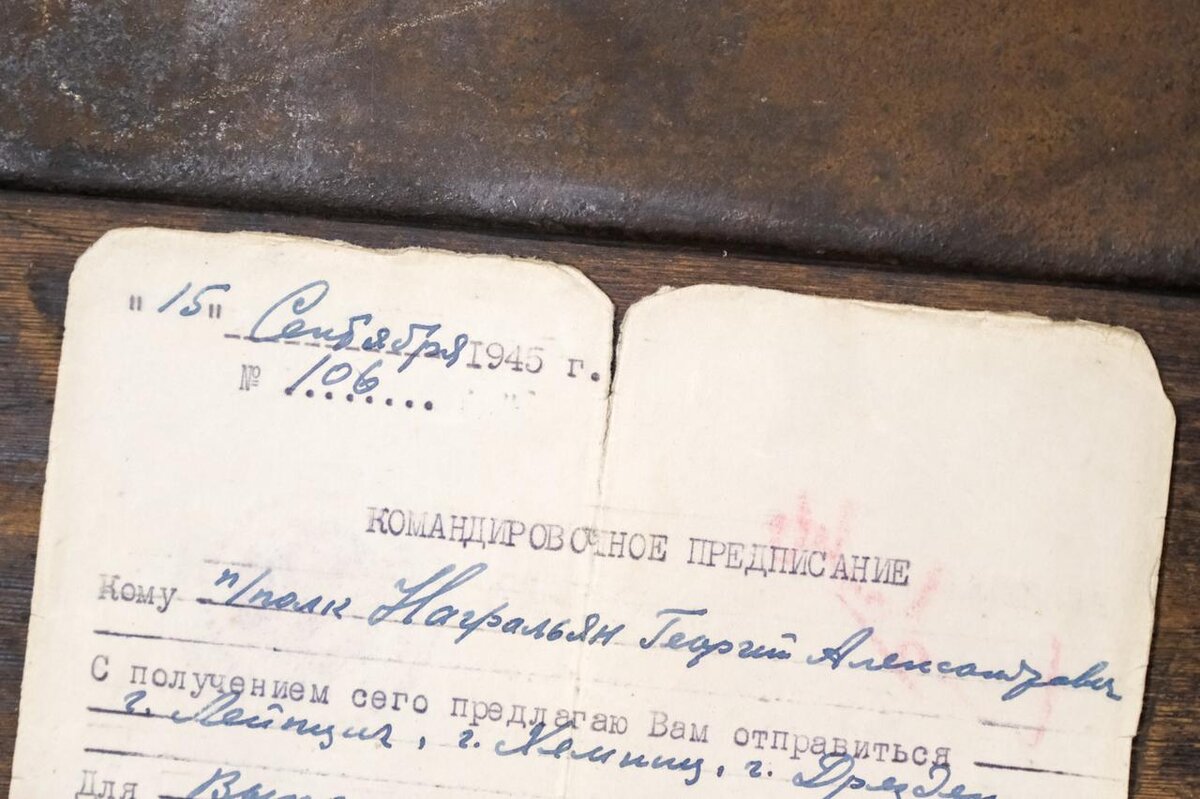 "15" Сентября 1945 г.
№ 106
КОМАНДИРОВОЧНОЕ ПРЕДПИСАНИЕ
Кому п/полк Награльян Георгий Александрович
С получением сего предлагаю Вам отправиться
г. Лейпциг, г. Хемниц, г. Дрезден
Для